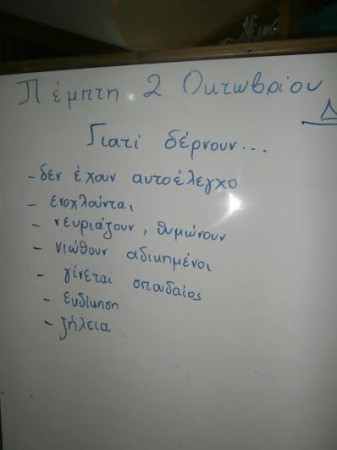 Πέμπτη 2 Οκτωβρίου
Γιατί δέρνουν...
-δεν έχουν αυτοέλεγχο
- ενοχλούνται
- νευριάζουν, θυμώνουν
- νιώθουν αδικημένοι
- γίνεται σπουδαίος
- ευδίκηση
- ζήλεια